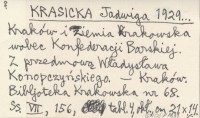 KRASICKA Jadwiga 1929...
Kraków i Ziemia Krakowska
wobec Konfederacji Barskiej.
Z przedmową Władysława
Konopczyńskiego. — Kraków.
Bibljoteka Krakowska nr 68.
S. VII, 156, tabl. 4, 8º, cm 21 x 14.